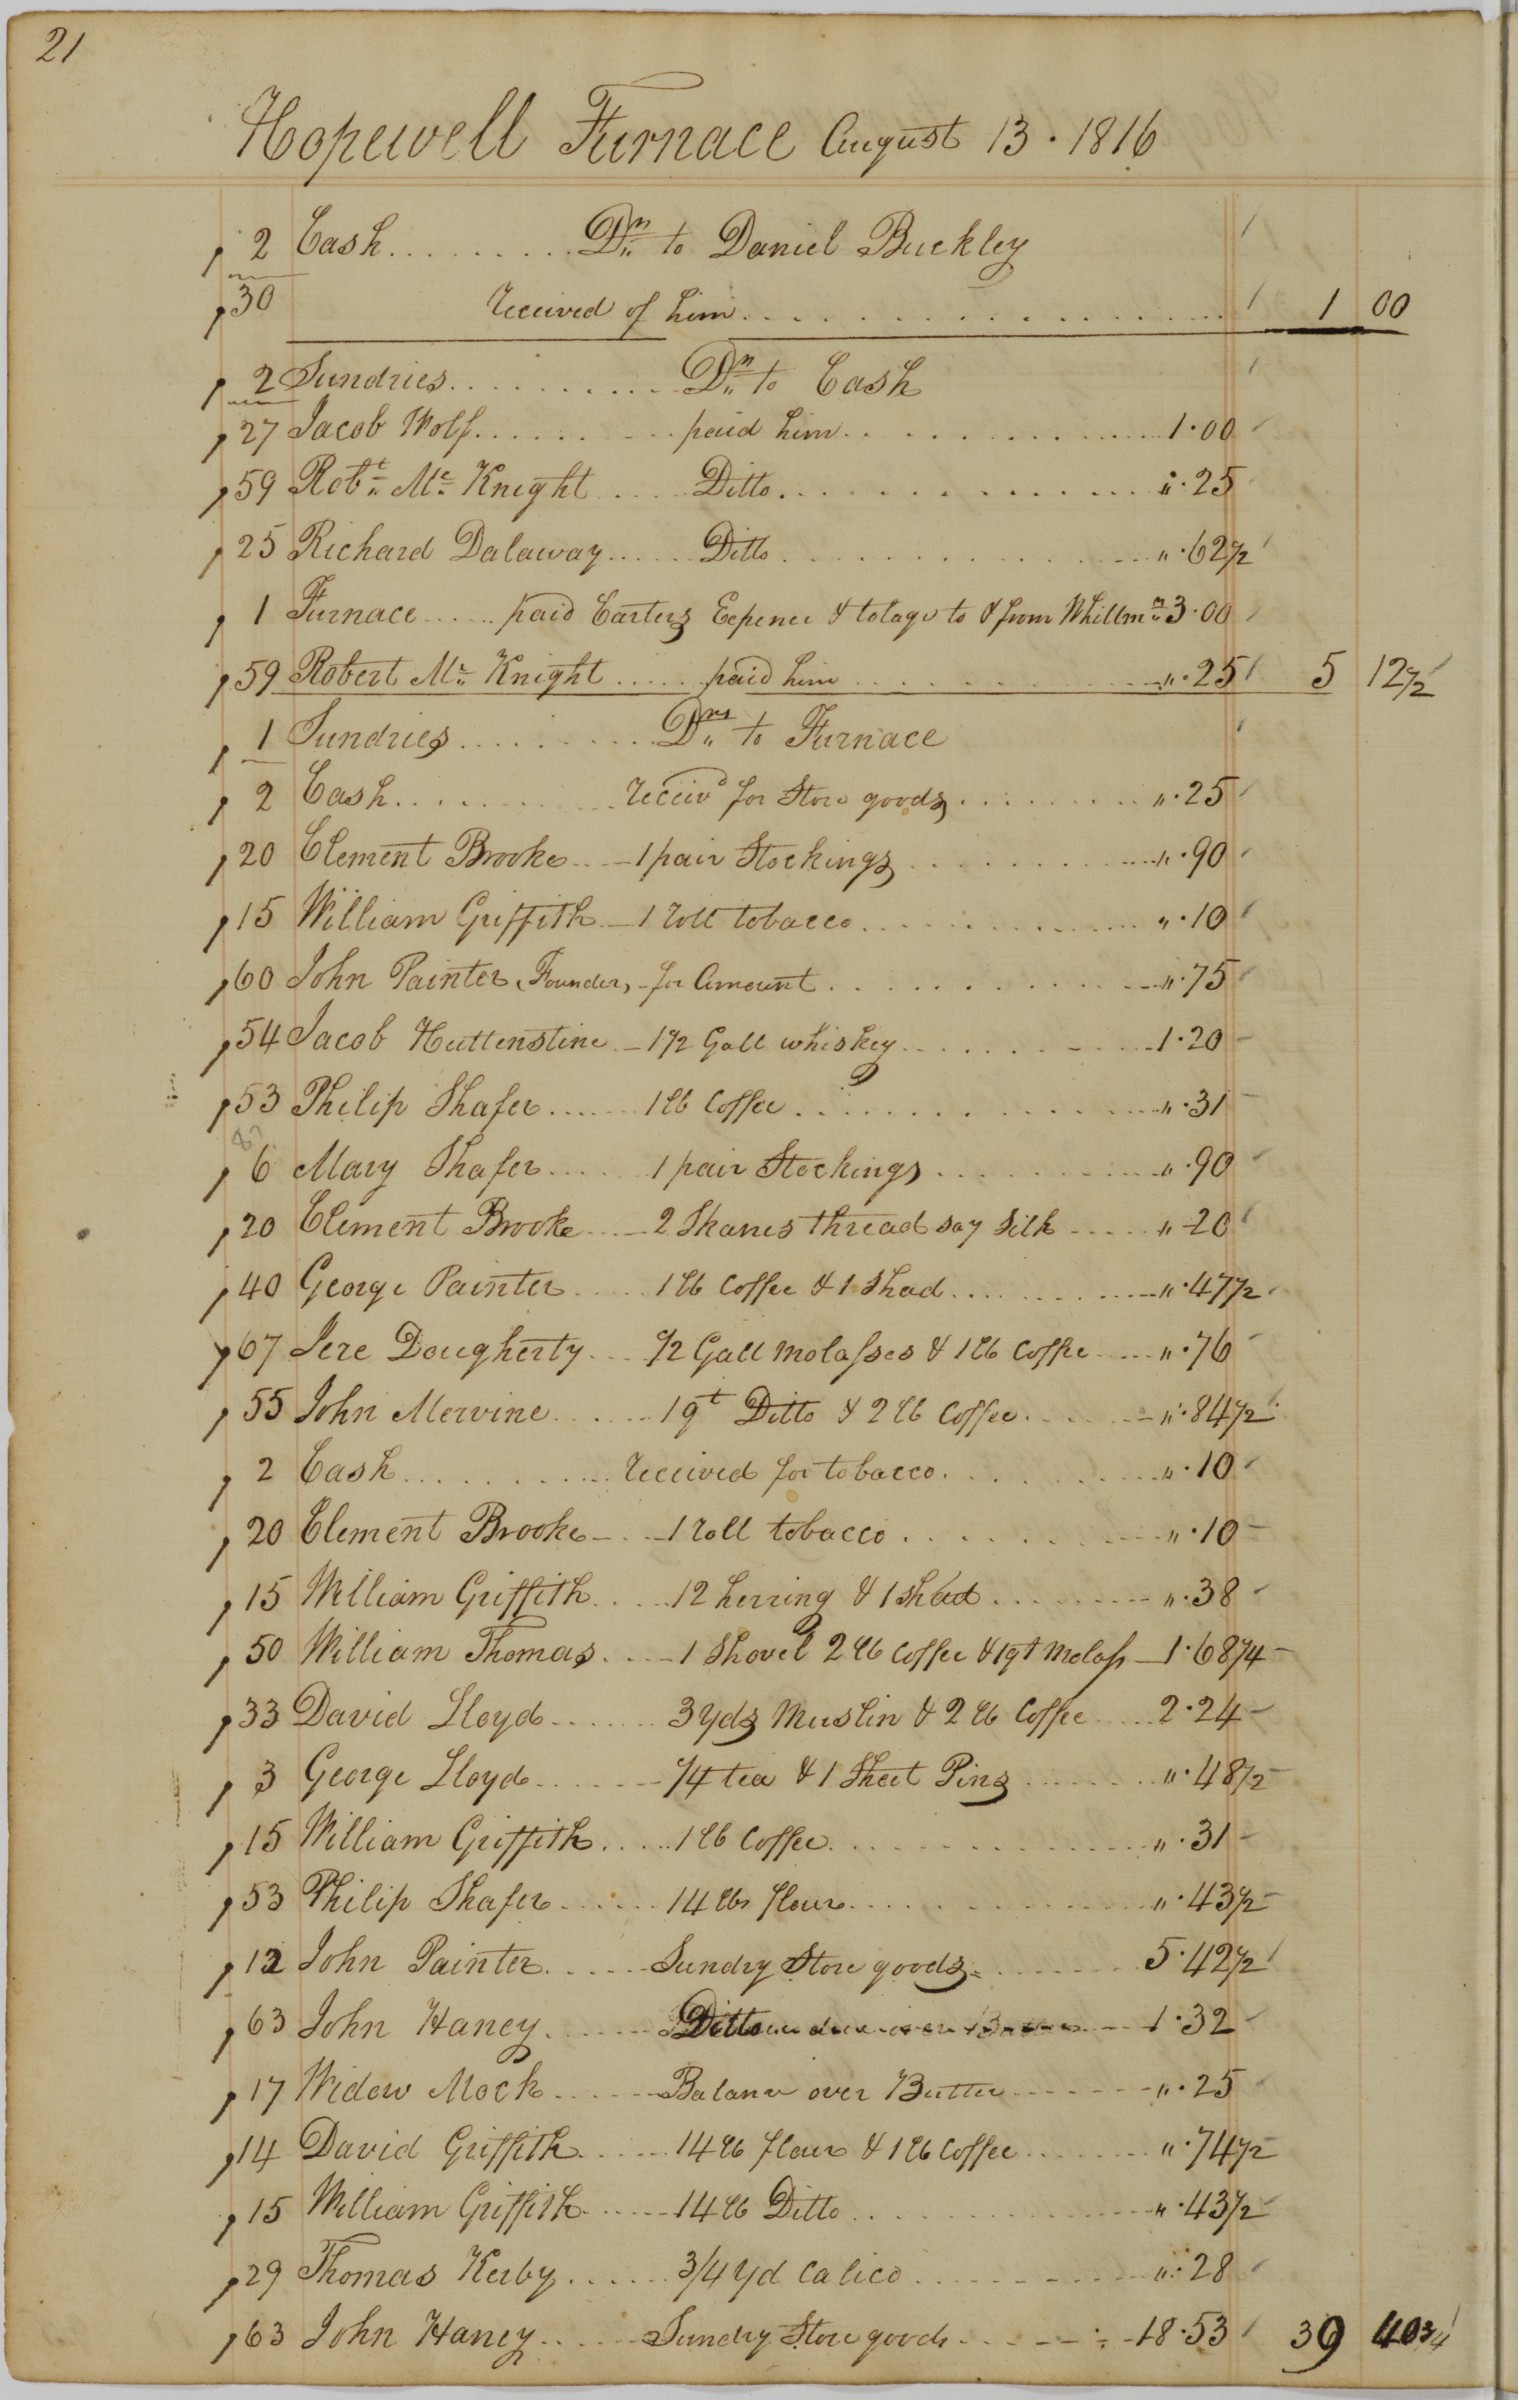 21
Hopewell Furnace August 13 · 1816
2 Cash .......... Drs to Daniel Buckley
30 received of him .......... 1 00
2 Sundries .......... Drs to Cash
27 Jacob Wolf .......... paid him .......... 1·00
59 Robt Mc Knight .... Ditto .......... "·25
25 Richard Dalaway ..... Ditto .......... "·62 1/2
1 Furnace ..... paid Carters Expence & tolage to & from Whillmn 3·00
59 Robert Mc Knight ..... paid him .......... "·25 5 12 1/2
1 Sundries .......... Drs to Furnace
2 Cash .......... receivd for Store goods .......... "·25
20 Clement Brooke ... 1 pair Stockings .......... "·90
15 William Griffith - 1 roll tobacco .......... "·10
60 John Painter (Founder) - for Amount .......... "·75
54 Jacob Huttenstine - 1 1/2 Gall whiskey .......... 1·20
53 Philip Shafer ..... 1 lb Coffee .......... "·31
6 Mary Shafer ..... 1 pair Stockings .......... "·90
20 Clement Brooke .... 2 Skanes thread say Silk ..... " 20
40 George Painter ..... 1 lb Coffee & 1 Shad .......... "·47 1/2
67 Jere Dougherty ... 1/2 Gall molasses & 1 lb Coffee .... "·76
55 John Mervine ...... 1 qt Ditto & 2 lb Coffee ...... "·84 1/2
2 Cash .......... received for tobacco .......... "·10
20 Clement Brooke ... 1 roll tobacco .......... "·10
15 William Griffith ..... 12 herring & 1 shad .......... "·38
50 William Thomas .... 1 Shovel 2 lb Coffee & 1 qt Molass - 1·68 1/4
33 David Lloyd ...... 3 yds Muslin & 2 lb Coffee .... 2·24
3 George Lloyd ...... 1/4 tea & 1 Sheet Pins ...... "·48 1/2
15 William Griffith ..... 1 lb Coffee .......... "·31
53 Philip Shafer ...... 14 lbs flour .......... "·43 1/2
12 John Painter ..... Sundry Store goods ...... 5·42 1/2
63 John Haney ...... Ditto .......... 1·32
17 Widow Mock ..... Balance over Butter ...... "·25
14 David Griffith ..... 14 lb flour & 1 lb Coffee ...... "·74 1/2
15 William Griffith ..... 14 lb Ditto .......... "·43 1/2
29 Thomas Kerby ..... 3/4 yd Calico .......... "·28
63 John Haney ..... Sundry Store goods ...... 18·53 39 40 3/4